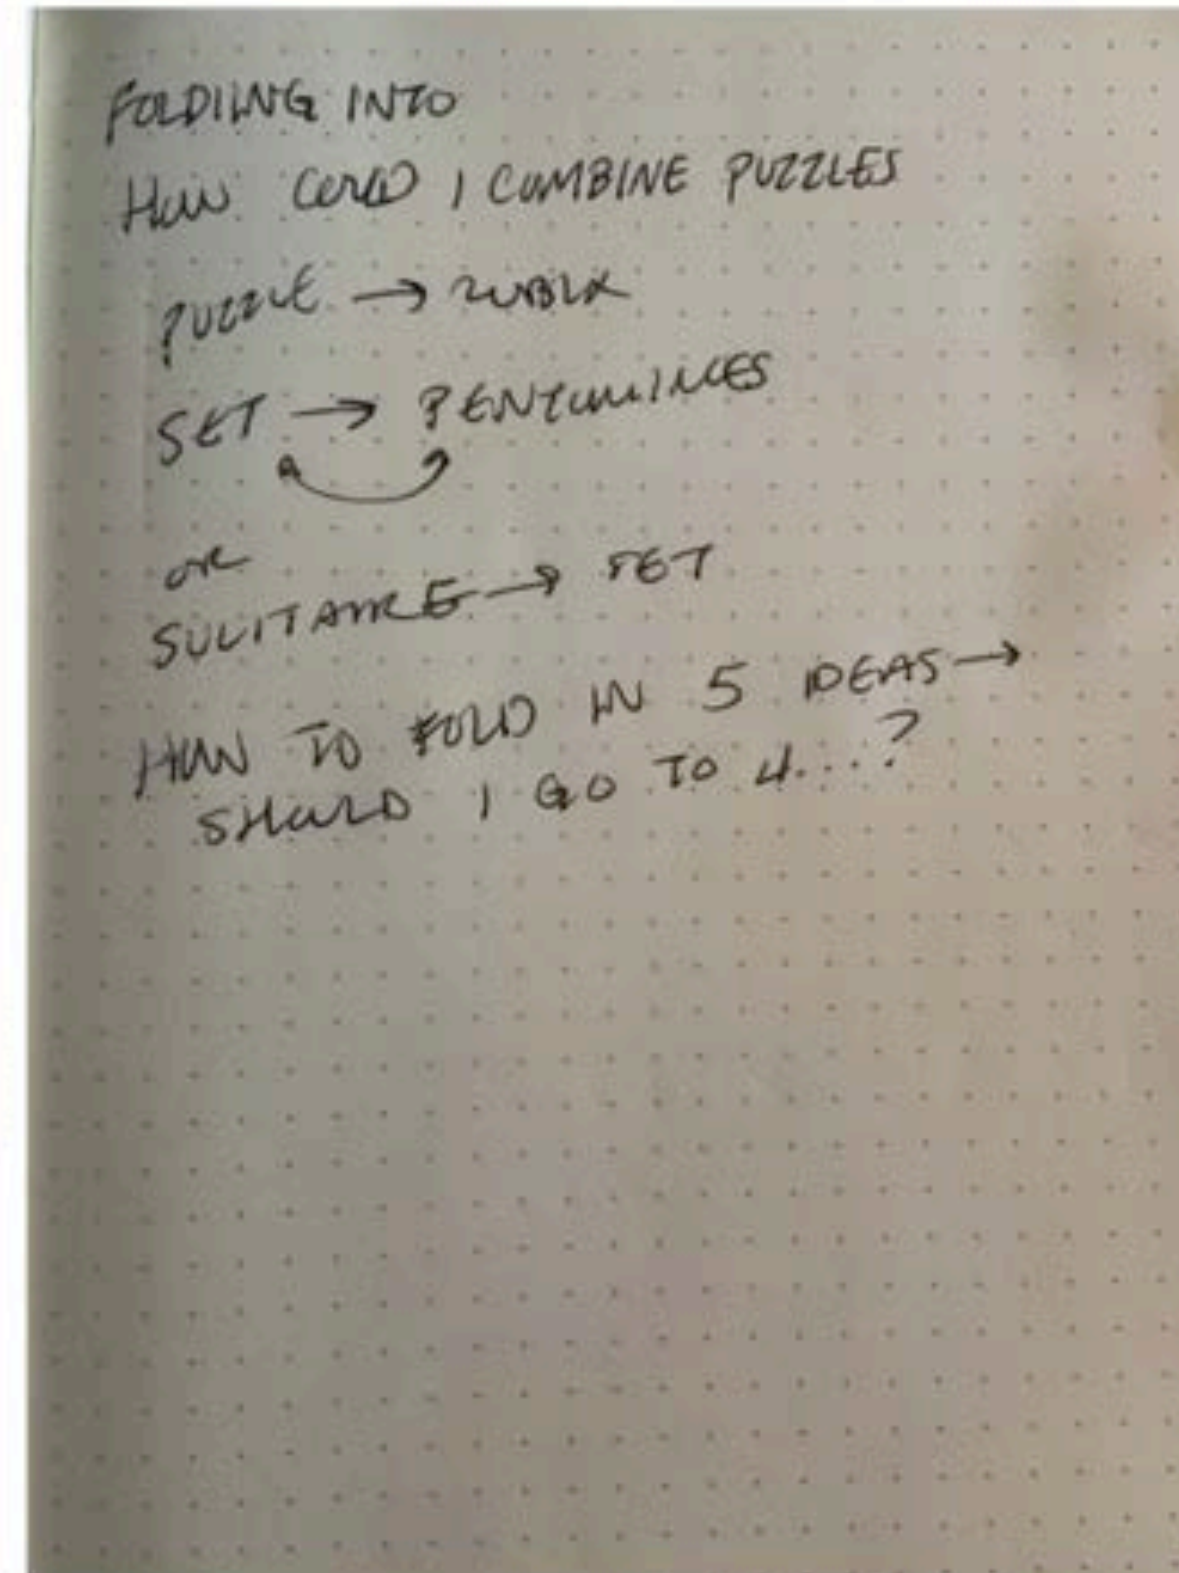 FOLDIING INTO
HOW COULD I COMBINE PUZZLES
PUZZLE → RUBIX
SET → PENTOMINOES
OR
SOLITAIRE → SET
HOW TO FOLD IN 5 IDEAS →
SHOULD I GO TO 4...?